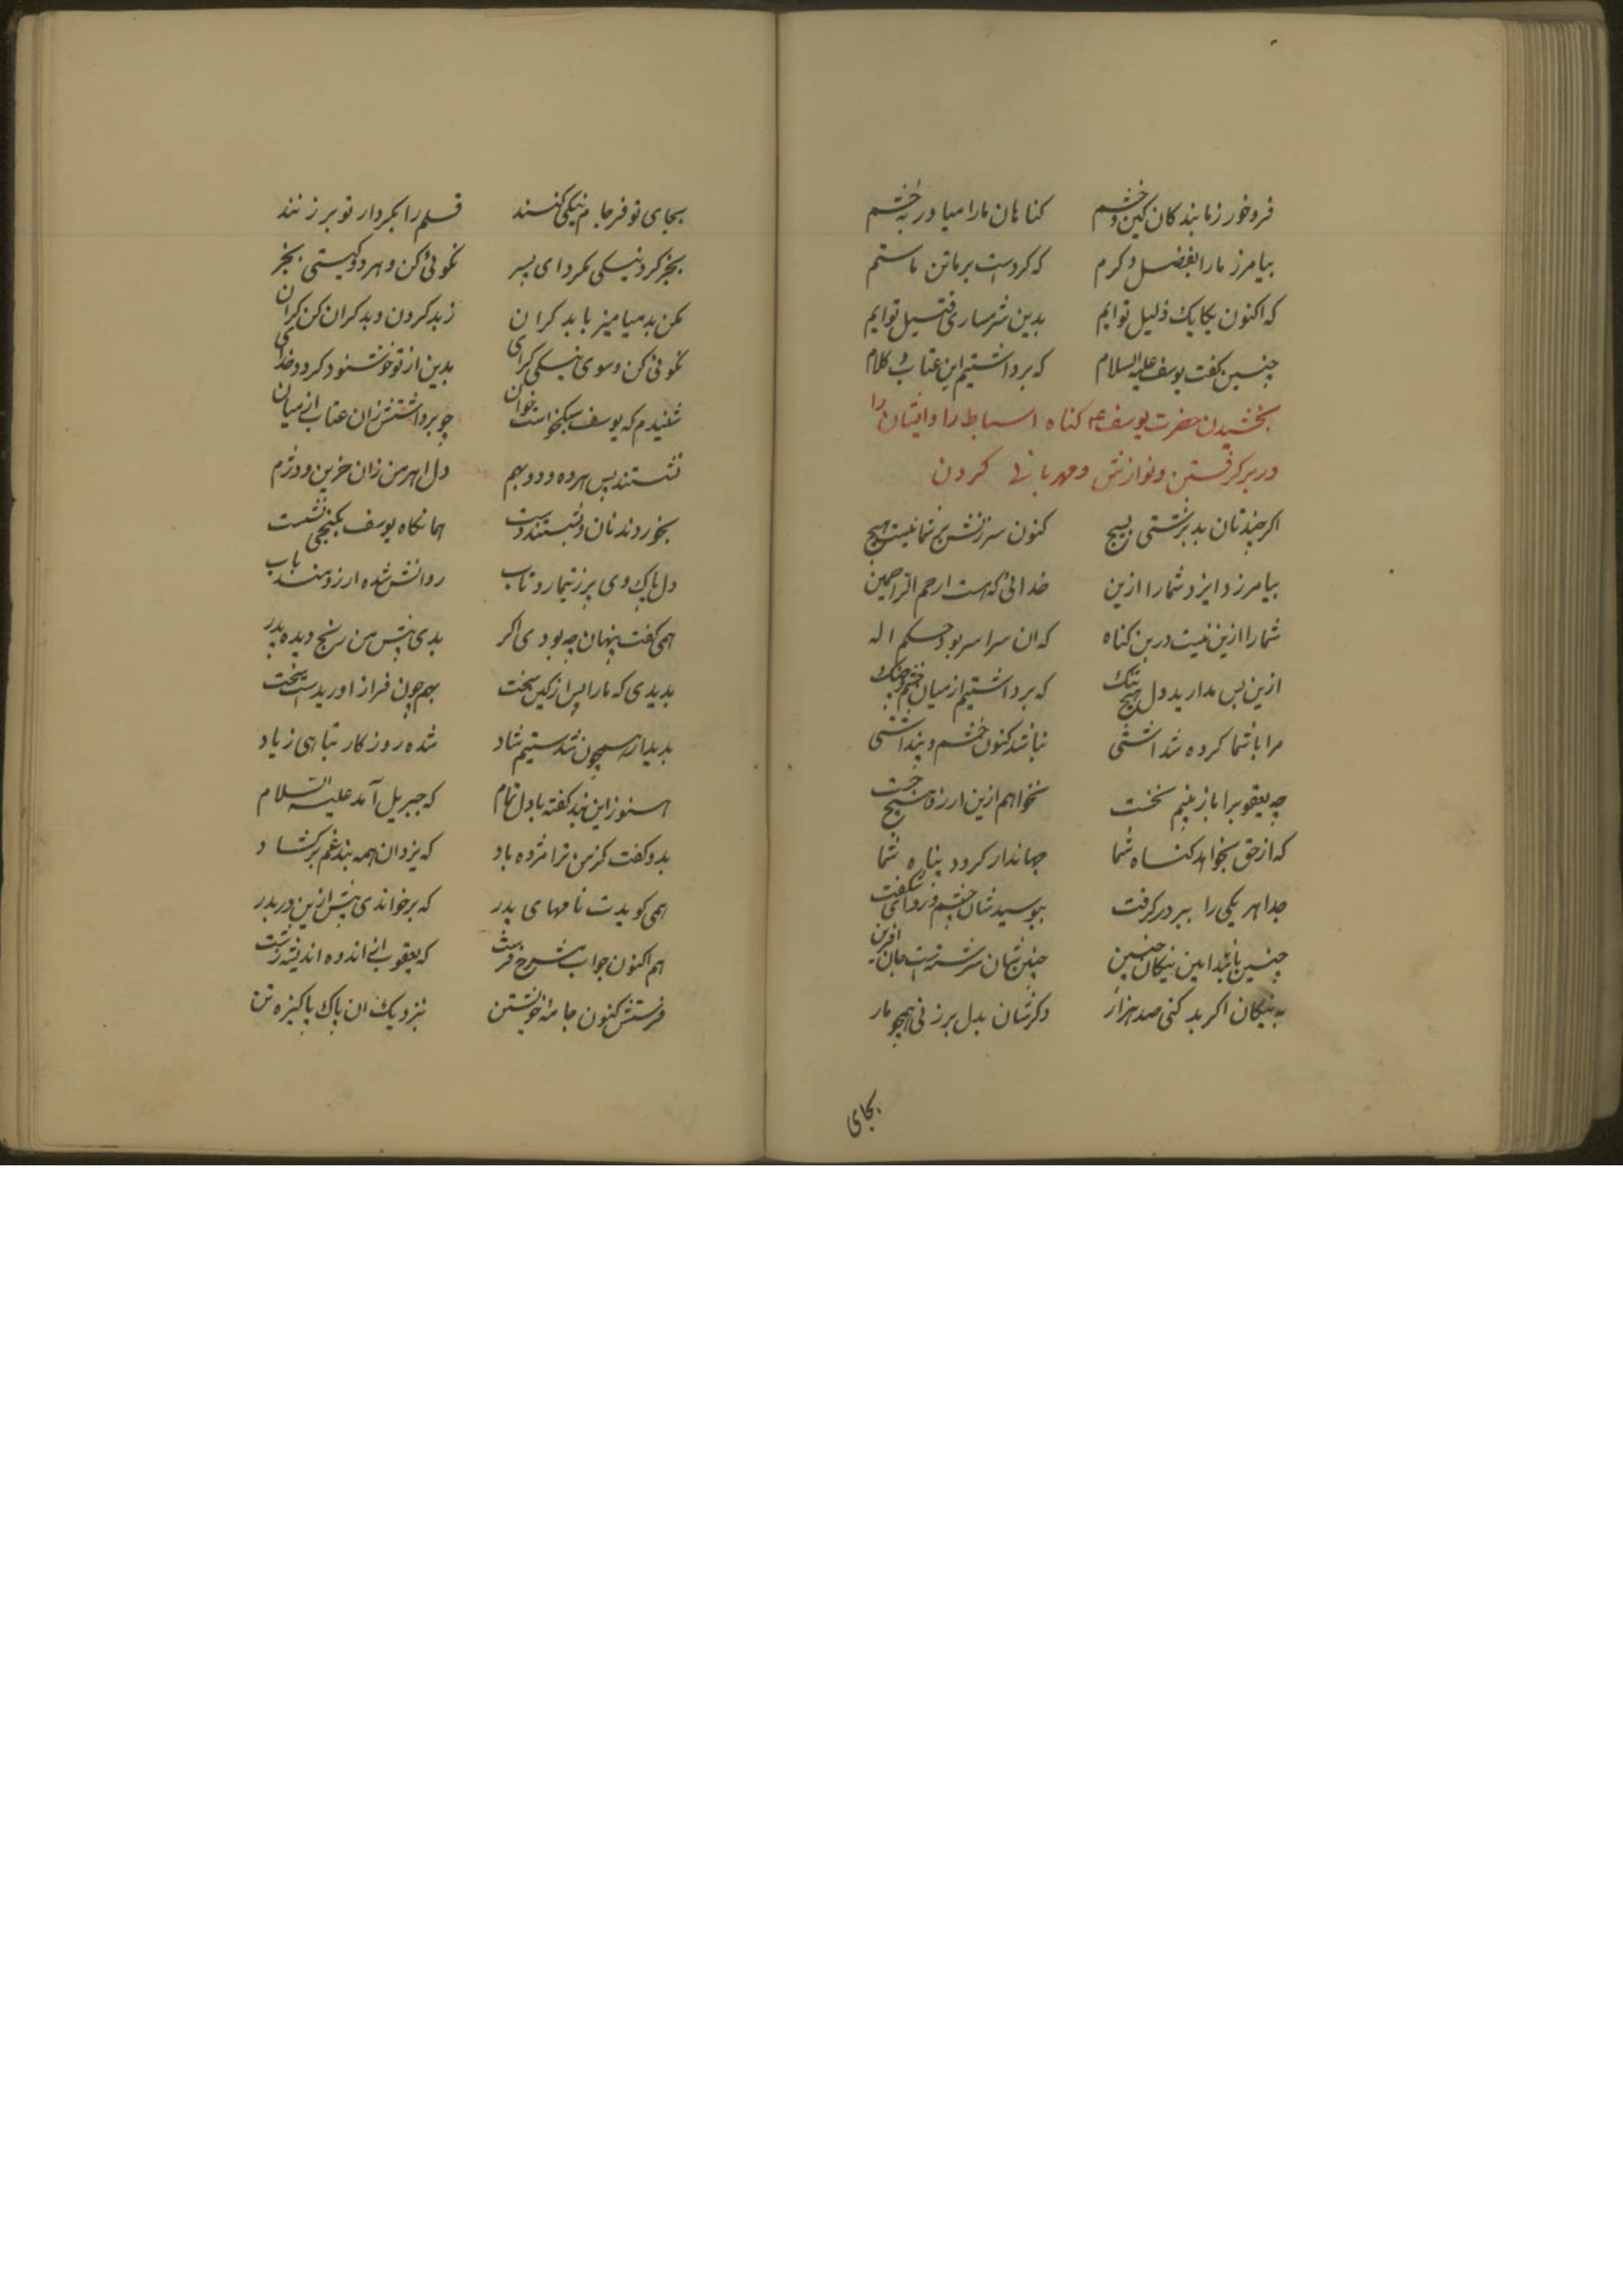 فروخور زما بندکان کین و خشم کناهان ما را میاور به خشم
بیامرز ما را بفضل و کرم که کردست بر ما تن ما ستم
که اکنون یکایک ذلیل توایم بدین شرمساری قتیل توایم
چنین کفت یوسف علیه السلام که برداشتیم این عتاب و کلام
بخشیدن حضرت یوسف ع کناه اسباط را و ایشان را
در بر کرفتن و نوازش و مهربانی کردن
اکر چندتان بد بزشتی بسیج کنون سرزنش بر شما نیست هیچ
بیامرزد ایزد شما را ازین خدائی که هست ارحم الراحمین
شما را ازین نیست درین کناه که ان سراسر بود حکم اله
ازین پس مدارید دل هیچ تنک که برداشتیم از میان خشم و جنک
مرا با شما کرده شد اشتی نباشد کنون خشم و پنداشتی
چه یعقوب را باز بینم نخست نخواهم ازین ارزوها هیچ جست
که از حق بخواهد کناه شما جهاندار کردد پناه شما
جدا هر یکی را ببر در کرفت ببوسیدشان چشم و روای شکفت
چنین باشد ایین نیکان چنین چنین شان سرشتست جان آفرین
به نیکان اکر بد کنی صد هزار دکرشان بدل برزنی همچو مار
بجای
بجای تو فرجام نیکی کنند قلم را بکردار تو بر زنند
بجز کرد نیکی مکرد ای پسر نکوئی کن و هر دو کیتی بخر
مکن بد میامیز با بد کران ز بد کردن و بد کران کن کران
نکوئی کن و سوی نیکی کرای بدین از تو خوشنود کردد خدای
شنیدم که یوسف نیکو خواست خوان چو برداشتش زان عتاب از میان
نشستند پس هر ده و دو بهم دل اهرمن زان حزین و دژم
بخوردند نان و بشستند دست همانکاه یوسف بکنجی نشست
دل پاک وی پر ز تیمار و تاب روانش شده ارزومند باب
همی کفت پنهان چه بودی اکر بدی پیش من رنج دیده پدر
بدیدی که ما را پس از کین سخت بهم چون فراز اوریدست بخت
بدیدار هم چون شدستیم شاد شده روزکار تباهی ز یاد
هنوز این نبد کفته با دل تمام که جبریل آمد علیه السلام
بدو کفت کز من ترا مژده باد که یزدان همه بند غم برکشاد
همی کویدت نامهای پدر که برخواندی پیش ازین در بدر
هم اکنون جوابش بشرح فرست که یعقوب از اندوه اندیشه رست
فرستش کنون جامۀ خویشتن نزدیک ان پاک پاکیزه تن